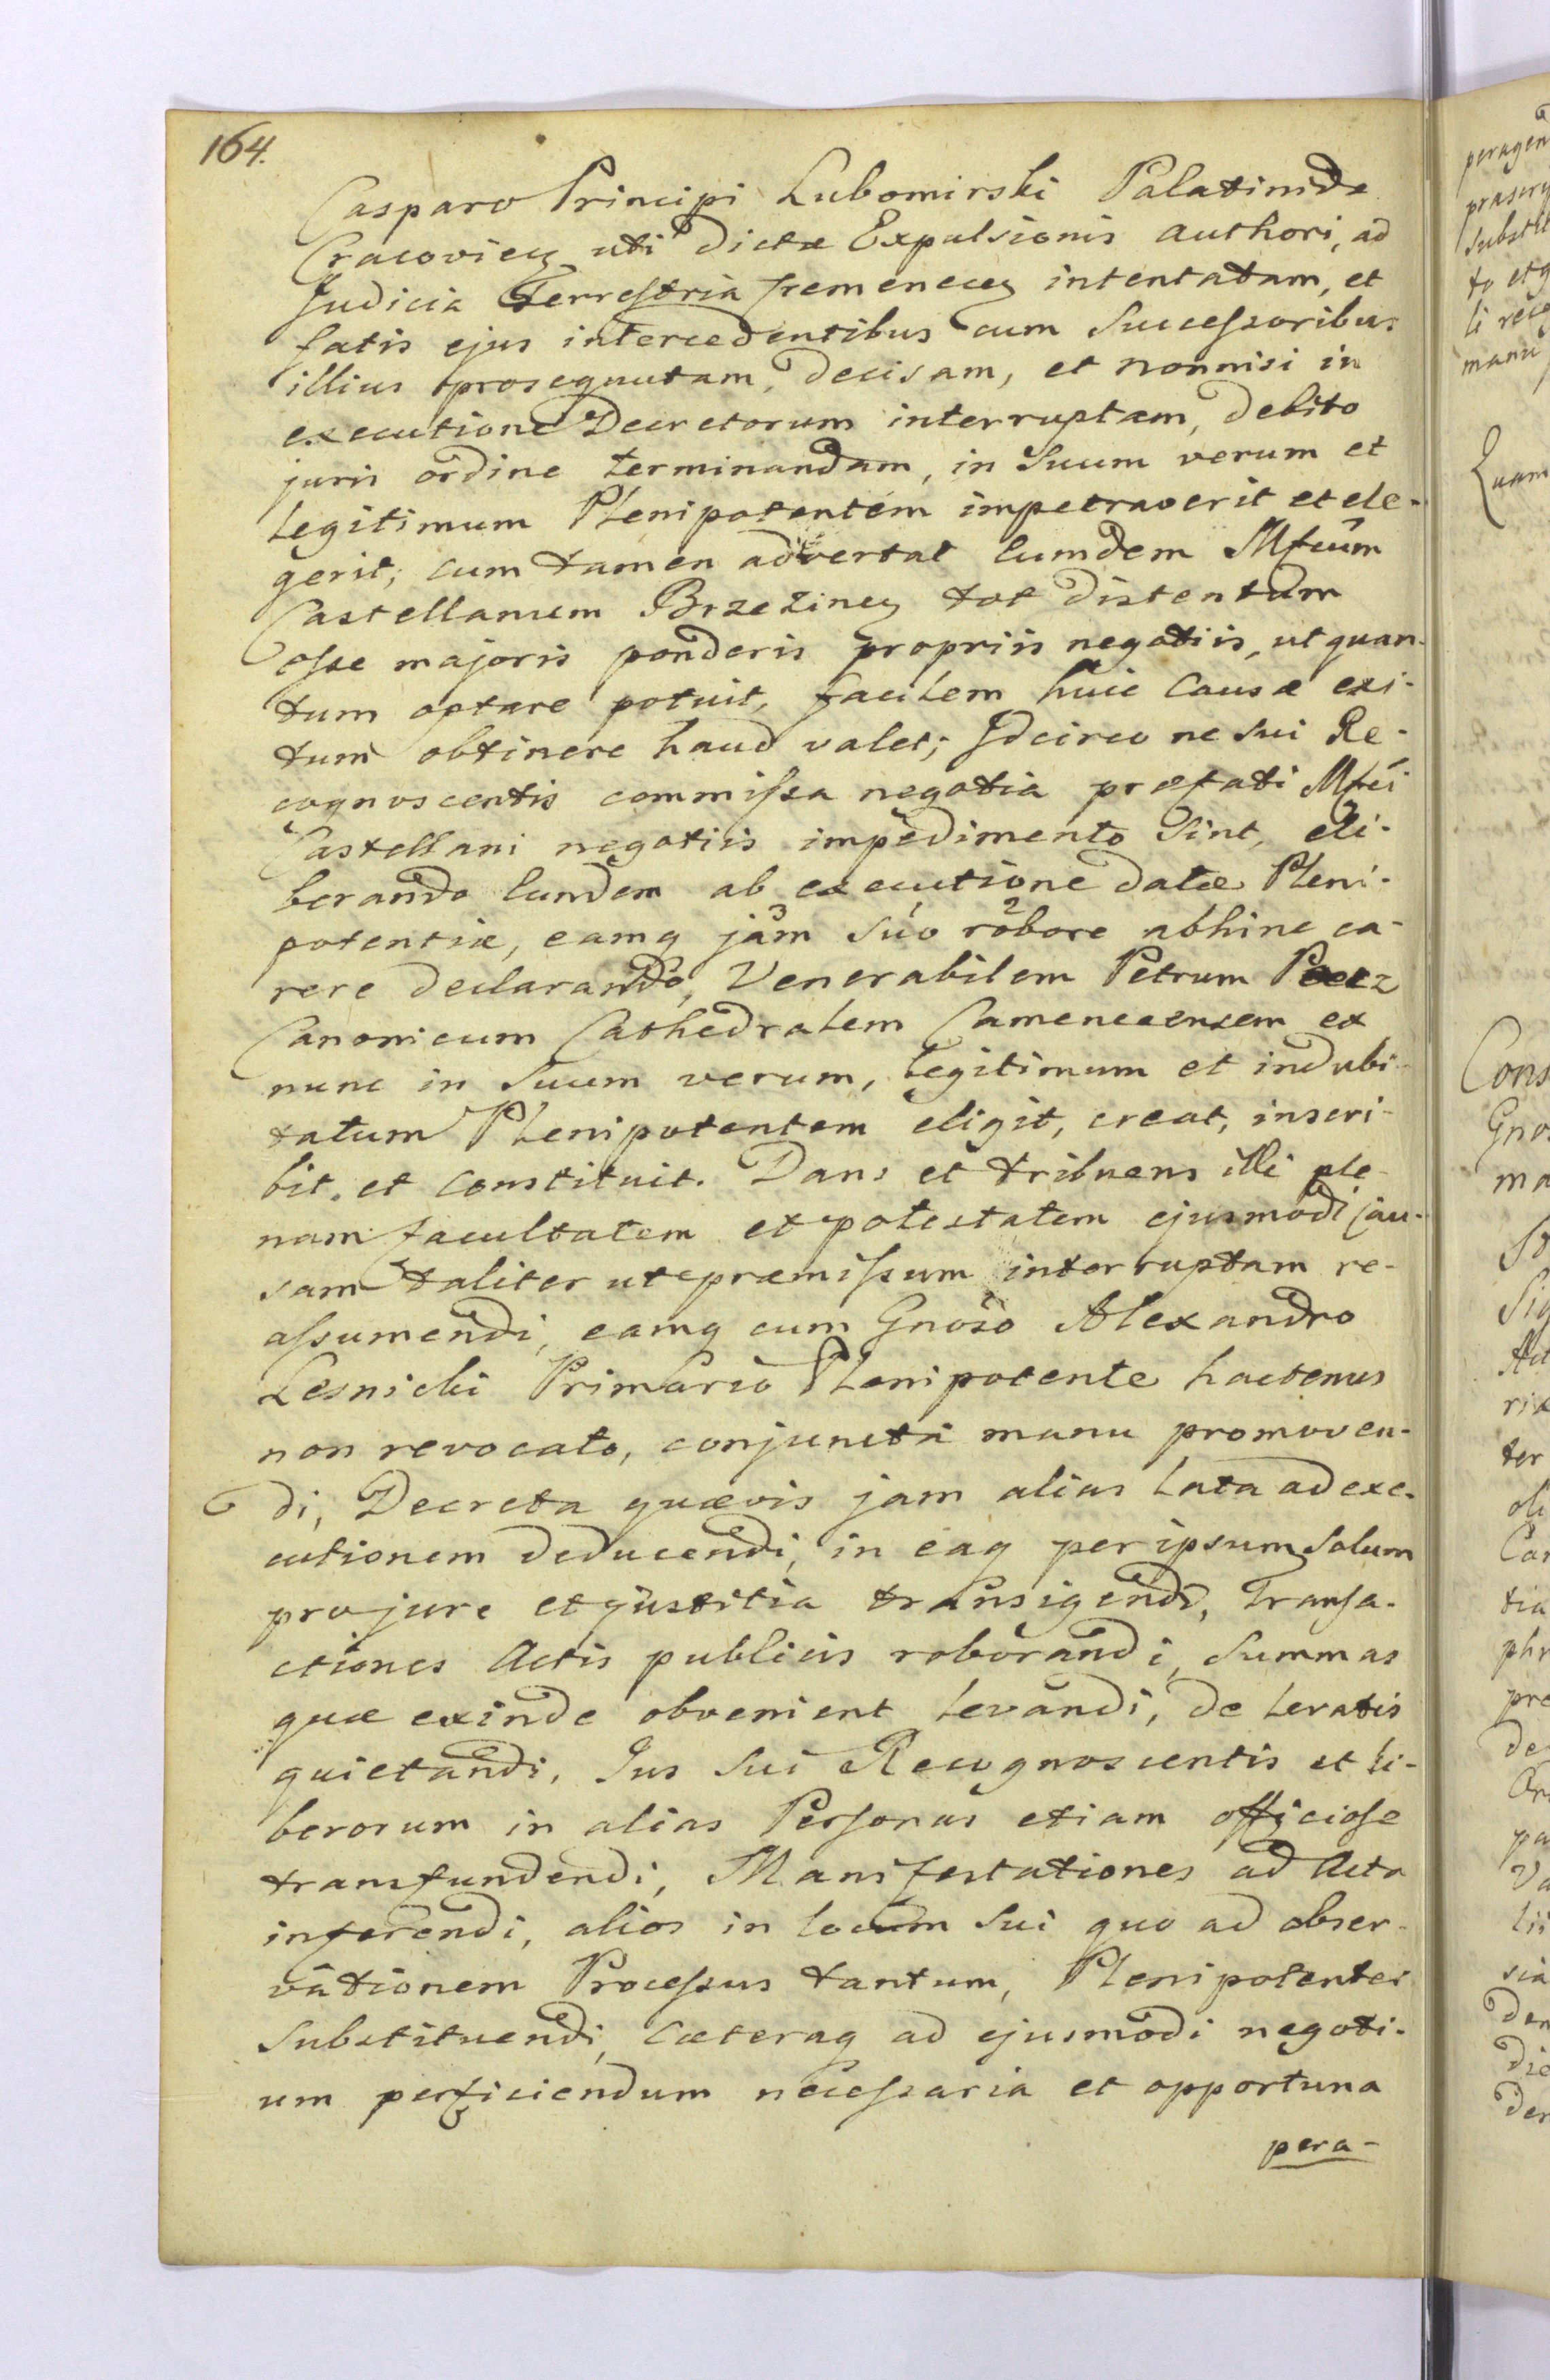 164.
Casparo Principi Lubomirski Palatinidæ
Cracovien uti dictæ Expulsionis authori, ad
Judicia Terrestria Cremenecen intentatam, et
fatis ejus intercedentibus cum Successoribus
illius prosequutam, decisam, et nonnisi in
executione Decretorum interruptam, debito
juris ordine terminandam, in Suum verum et
legitimum Plenipotentem impetraverit et ele-
gerit; cum tamen advertat Eumdem Mfcum
Castellanum Brzezinen tot distentum
esse majoris ponderis propriis negotiis, ut quan-
tum optare potuit, facilem huic Causæ exi-
tum obtinere haud valet; Idcirco ne sui Re-
cognoscentis commissa negotia præfati Mfci
Castellani negotiis impedimento Sint, eli-
berando Eundem ab executione datæ Pleni-
potentiæ, eamq jam suo robore abhinc ca-
rere declarando, Venerabilem Petrum
Canonicum Cathedralem Camenecensem ex
nunc in Suum verum, legitimum et indubi-
tatum Plenipotentem eligit, creat, inscri-
bit, et constituit. Dans et tribuens illi ple-
nam facultatem et potestatem ejusmodi Cau-
sam taliter ut præmissum interruptam re-
assumendi, eamq cum Gnoso Alexandro
Lesnicki Primario Plenipotente hactenus
non revocato, conjuncta manu promoven-
di, Decreta quævis jam alias lata ad exe-
cutionem deducendi, in eaq per ipsum Solum
pro jure et justitia transigendi, Transa-
ctiones Actis publicis roborandi, Summas
quæ exinde obvenient levandi, de levatis
quietandi, Jus sui Recognoscentis et li-
berorum in alias Personas etiam officiose
transfundendi, Manifestationes ad Acta
inferendi, alios in locum sui quo ad obser-
vationem Processus tantum, Plenipotentes
Substituendi, cæteraq ad ejusmodi negoti-
um perficiendum necessaria et opportuna
pera-